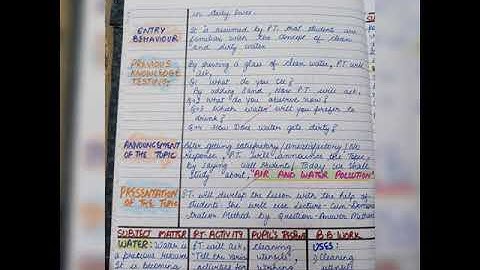 in daily lives.
ENTRY BEHAVIOUR
It is assumed by P.T. that student are
familiar with the concept of clean
and dirty water
PREVIOUS KNOWLEDGE TESTING
By showing a glass of clean water, P.T. will
ask,
Q1 What do you see?
By adding sand Now P.T. will ask,
Q=2 What do you observe now?
Q=3 Which water will you prefer to
drink?
Q=4 How Does water gets dirty?
ANNOUNCEMENT OF THE TOPIC
After getting satisfactory/unsatisfactory/No
response, P.T. will announce the topic
by saying well students! Today we shall
study about, "AIR AND WATER POLLUTION"
PRESENTATION OF THE TOPIC
P.T. will develop the lesson with the help of
students. She will use Lecture-Cum-Demons-
tration Method by Question-Answer Method
SUBJECT MATTER P.T. ACTIVITY PUPIL'S B.B WORK
WATER: Water is P.T. will ask, cleaning USES:
a precious "Tell the various utensils, cleaning
It is becoming activities for washing utensils